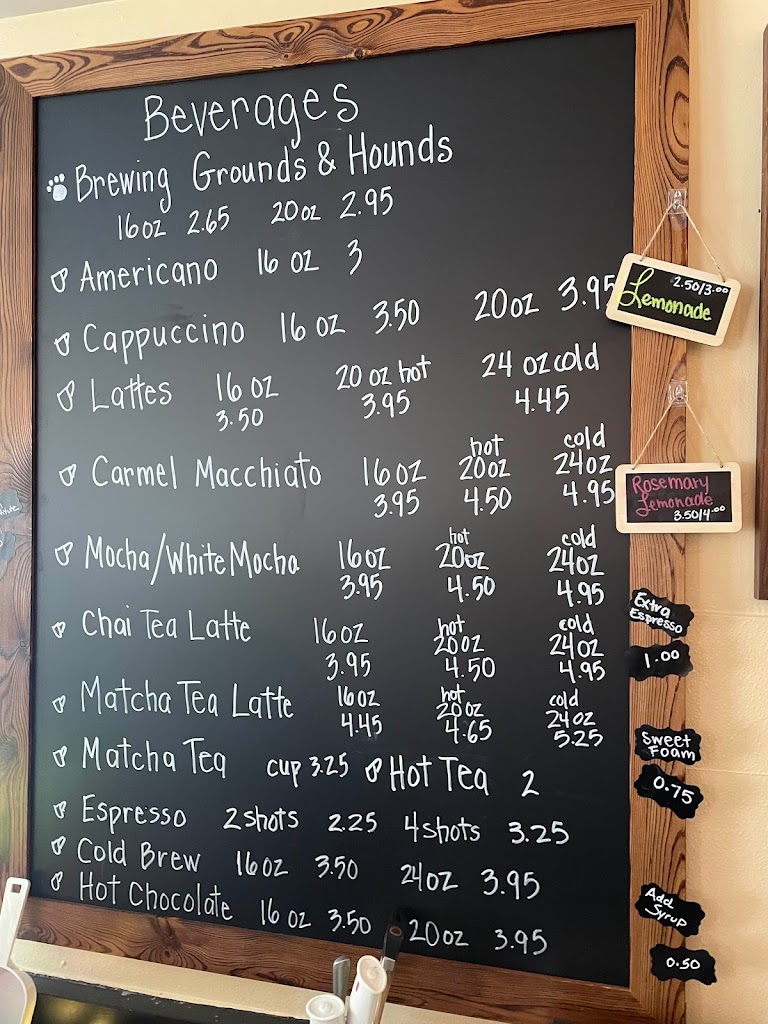 Beverages
Brewing Grounds & Hounds
16oz 2.65 20oz 2.95
Americano 16 oz 3
Cappuccino 16 oz 3.50 20oz 3.95
Lattes 16 oz 20 oz hot 24 oz cold
3.50 3.95 4.45
hot cold
Carmel Macchiato 16oz 20oz 24oz
3.95 4.50 4.95
hot cold
Mocha/White Mocha 16oz 20oz 24oz
3.95 4.50 4.95
hot cold
Chai Tea Latte 16oz 20oz 24oz
3.95 4.50 4.95
hot cold
Matcha Tea Latte 16oz 20oz 24oz
4.45 4.65 5.25
Matcha Tea cup 3.25 Hot Tea 2
Espresso 2shots 2.25 4shots 3.25
Cold Brew 16oz 3.50 24oz 3.95
Hot Chocolate 16 oz 3.50 20oz 3.95
2.50/3.00
Lemonade
Rosemary
Lemonade
3.50/4.00
Extra
Espresso
1.00
Sweet
Foam
0.75
Add
Syrup
0.50